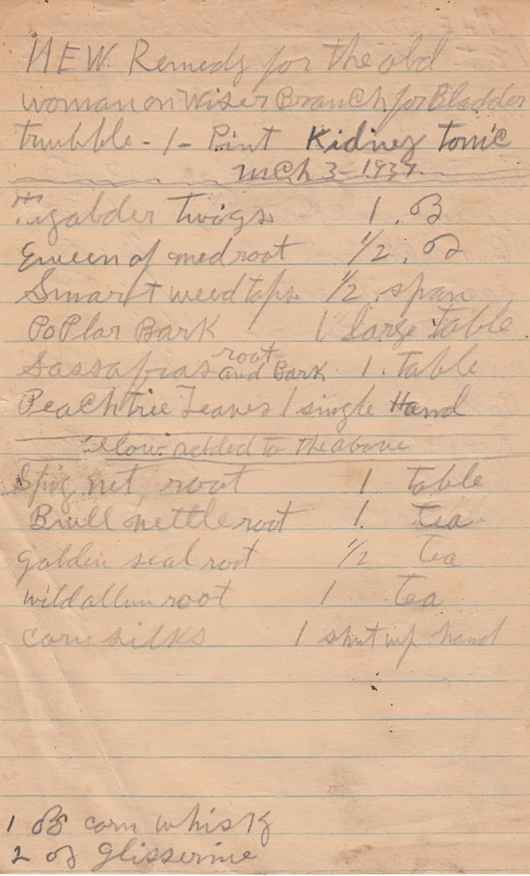 NEW. Remedy for the old
woman on Wiser Branch for Bladder
trubble - 1 - Pint Kidney tonic
mch 3 - 1937
twigs 1. oz
Queen of med root 1/2. oz
Smart weed tops 1/2 span
PoPlar Bark 1 large table
Sassafras root and Bark 1. Table
Peach tree Leaves 1 single Hand
added to the above
Spig net root 1 table
Bull nettle root 1. tea
golden seal root 1/2 tea
wild allum root 1 tea
corn silks 1 shut up hand
1 oz corn whisky
2 oz glisserine